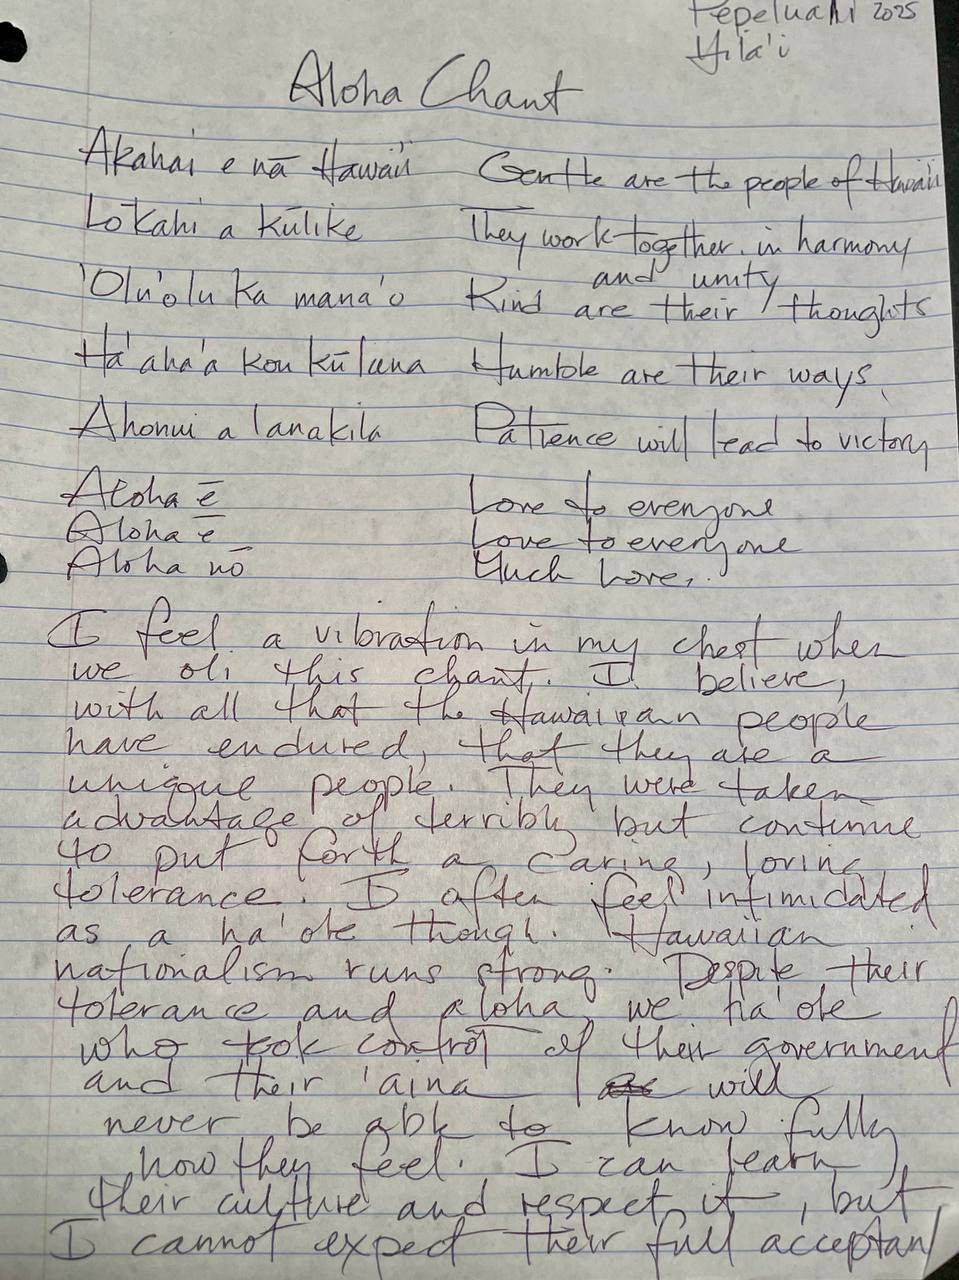 Pepeluali 2025
Hila'i
Aloha Chant
Akahai e nā Hawai'i Gentle are the people of Hawaii
Lōkahi a kūlike They work together in harmony
and unity
'Olu'olu ka mana'o Kind are their thoughts
Ha'aha'a kou kūlana Humble are their ways.
Ahonui a lanakila Patience will lead to victory
Aloha ē Love to everyone
Aloha ē Love to everyone
Aloha nō Much Love.
I feel a vibration in my chest when
we oli this chant. I believe,
with all that the Hawaiian people
have endured, that they are a
unique people. They were taken
advantage of terribly but continue
to put forth a caring, loving
tolerance. I often feel intimidated
as a ha'ole though. Hawaiian
nationalism runs strong. Despite their
tolerance and aloha, we ha'ole
who took control of their government
and their 'aina will
never be able to know fully
how they feel. I can learn
their culture and respect it, but
I cannot expect their full acceptan